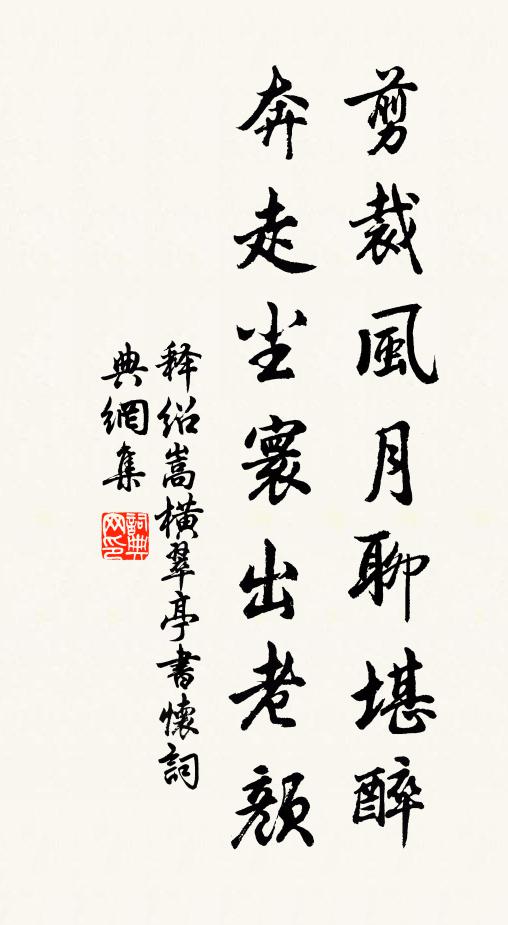 剪裁風月聊堪醉
奔走尘寰出老顏
释绍嵩橫翠亭書懷詞
典網集
詞典
网印